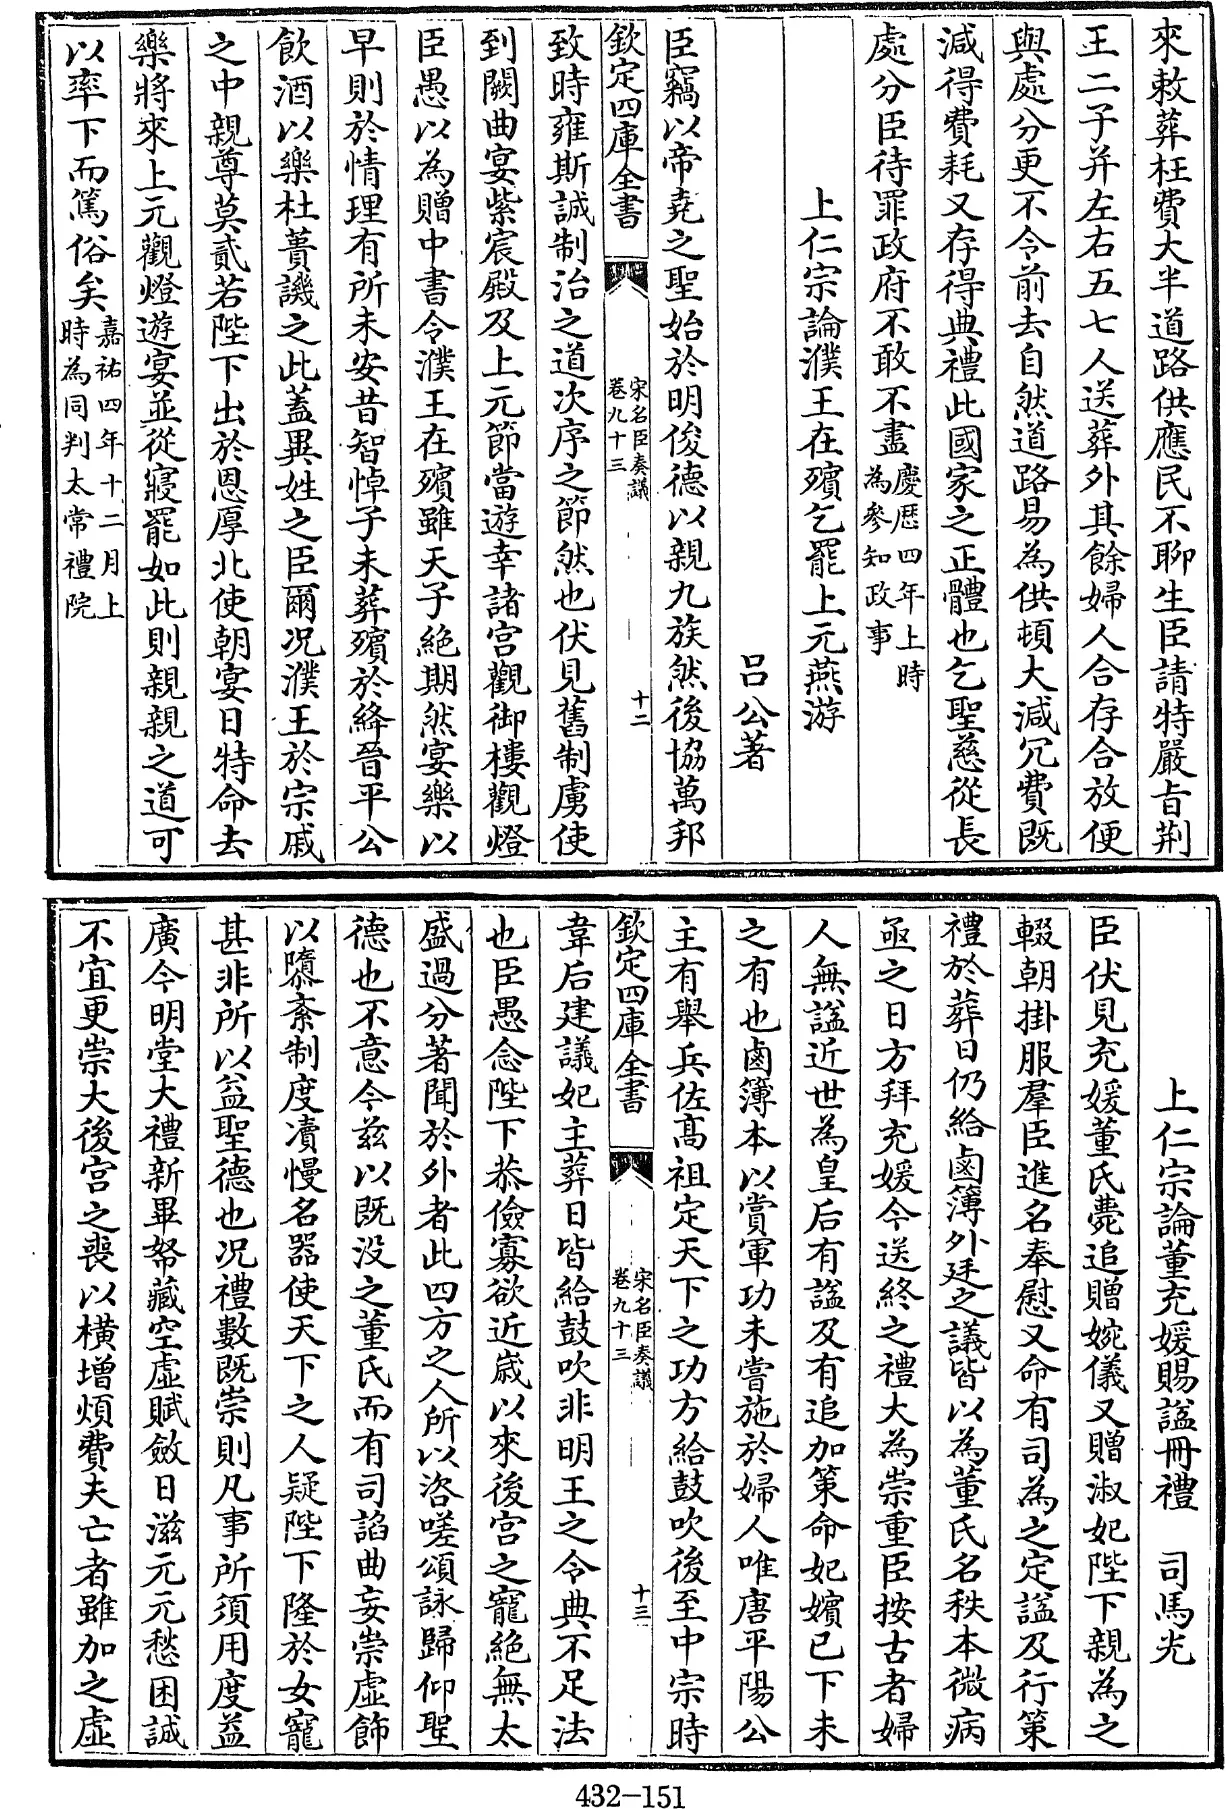 來敕葬枉費大半道路供應民不聊生臣請特嚴旨荆
王二子并左右五七人送葬外其餘婦人合存合放便
與處分更不令前去自然道路易為供頓大減冗費既
減得費耗又存得典禮此國家之正體也乞聖慈從長
處分臣待罪政府不敢不盡慶厯四年上時
為參知政事
上仁宗論濮王在殯乞罷上元燕游
吕公著
臣竊以帝堯之聖始於明俊德以親九族然後協萬邦
欽定四庫全書
宋名臣奏議
卷九十三
十二
致時雍斯誠制治之道次序之節然也伏見舊制虜使
到闕曲宴紫宸殿及上元節當遊幸諸宫觀御樓觀燈
臣愚以為贈中書令濮王在殯雖天子絶期然宴樂以
早則於情理有所未安昔智悼子未葬殯於絳晉平公
飲酒以樂杜蕢譏之此蓋異姓之臣爾况濮王於宗戚
之中親尊莫貳若陛下出於恩厚北使朝宴日特命去
樂將來上元觀燈遊宴並從寢罷如此則親親之道可
以率下而篤俗矣嘉祐四年十二月上
時為同判太常禮院
上仁宗論董充媛賜諡冊禮　司馬光
臣伏見充媛董氏薨追贈婉儀又贈淑妃陛下親為之
輟朝掛服羣臣進名奉慰又命有司為之定諡及行策
禮於葬日仍給鹵簿外廷之議皆以為董氏名秩本微病
亟之日方拜充媛今送終之禮大為崇重臣按古者婦
人無諡近世為皇后有諡及有追加策命妃嬪已下未
之有也鹵簿本以賞軍功未嘗施於婦人唯唐平陽公
主有舉兵佐高祖定天下之功方給鼓吹後至中宗時
欽定四庫全書
宋名臣奏議
卷九十三
十三
韋后建議妃主葬日皆給鼓吹非明王之令典不足法
也臣愚念陛下恭儉寡欲近嵗以來後宫之寵絶無太
盛過分著聞於外者此四方之人所以咨嗟頌詠歸仰聖
德也不意今兹以既没之董氏而有司諂曲妄崇虚飾
以隳紊制度凟慢名器使天下之人疑陛下隆於女寵
甚非所以益聖德也况禮數既崇則凡事所須用度益
廣今明堂大禮新畢帑藏空虚賦斂日滋元元愁困誠
不宜更崇大後宫之喪以横增煩費夫亡者雖加之虚
432-151